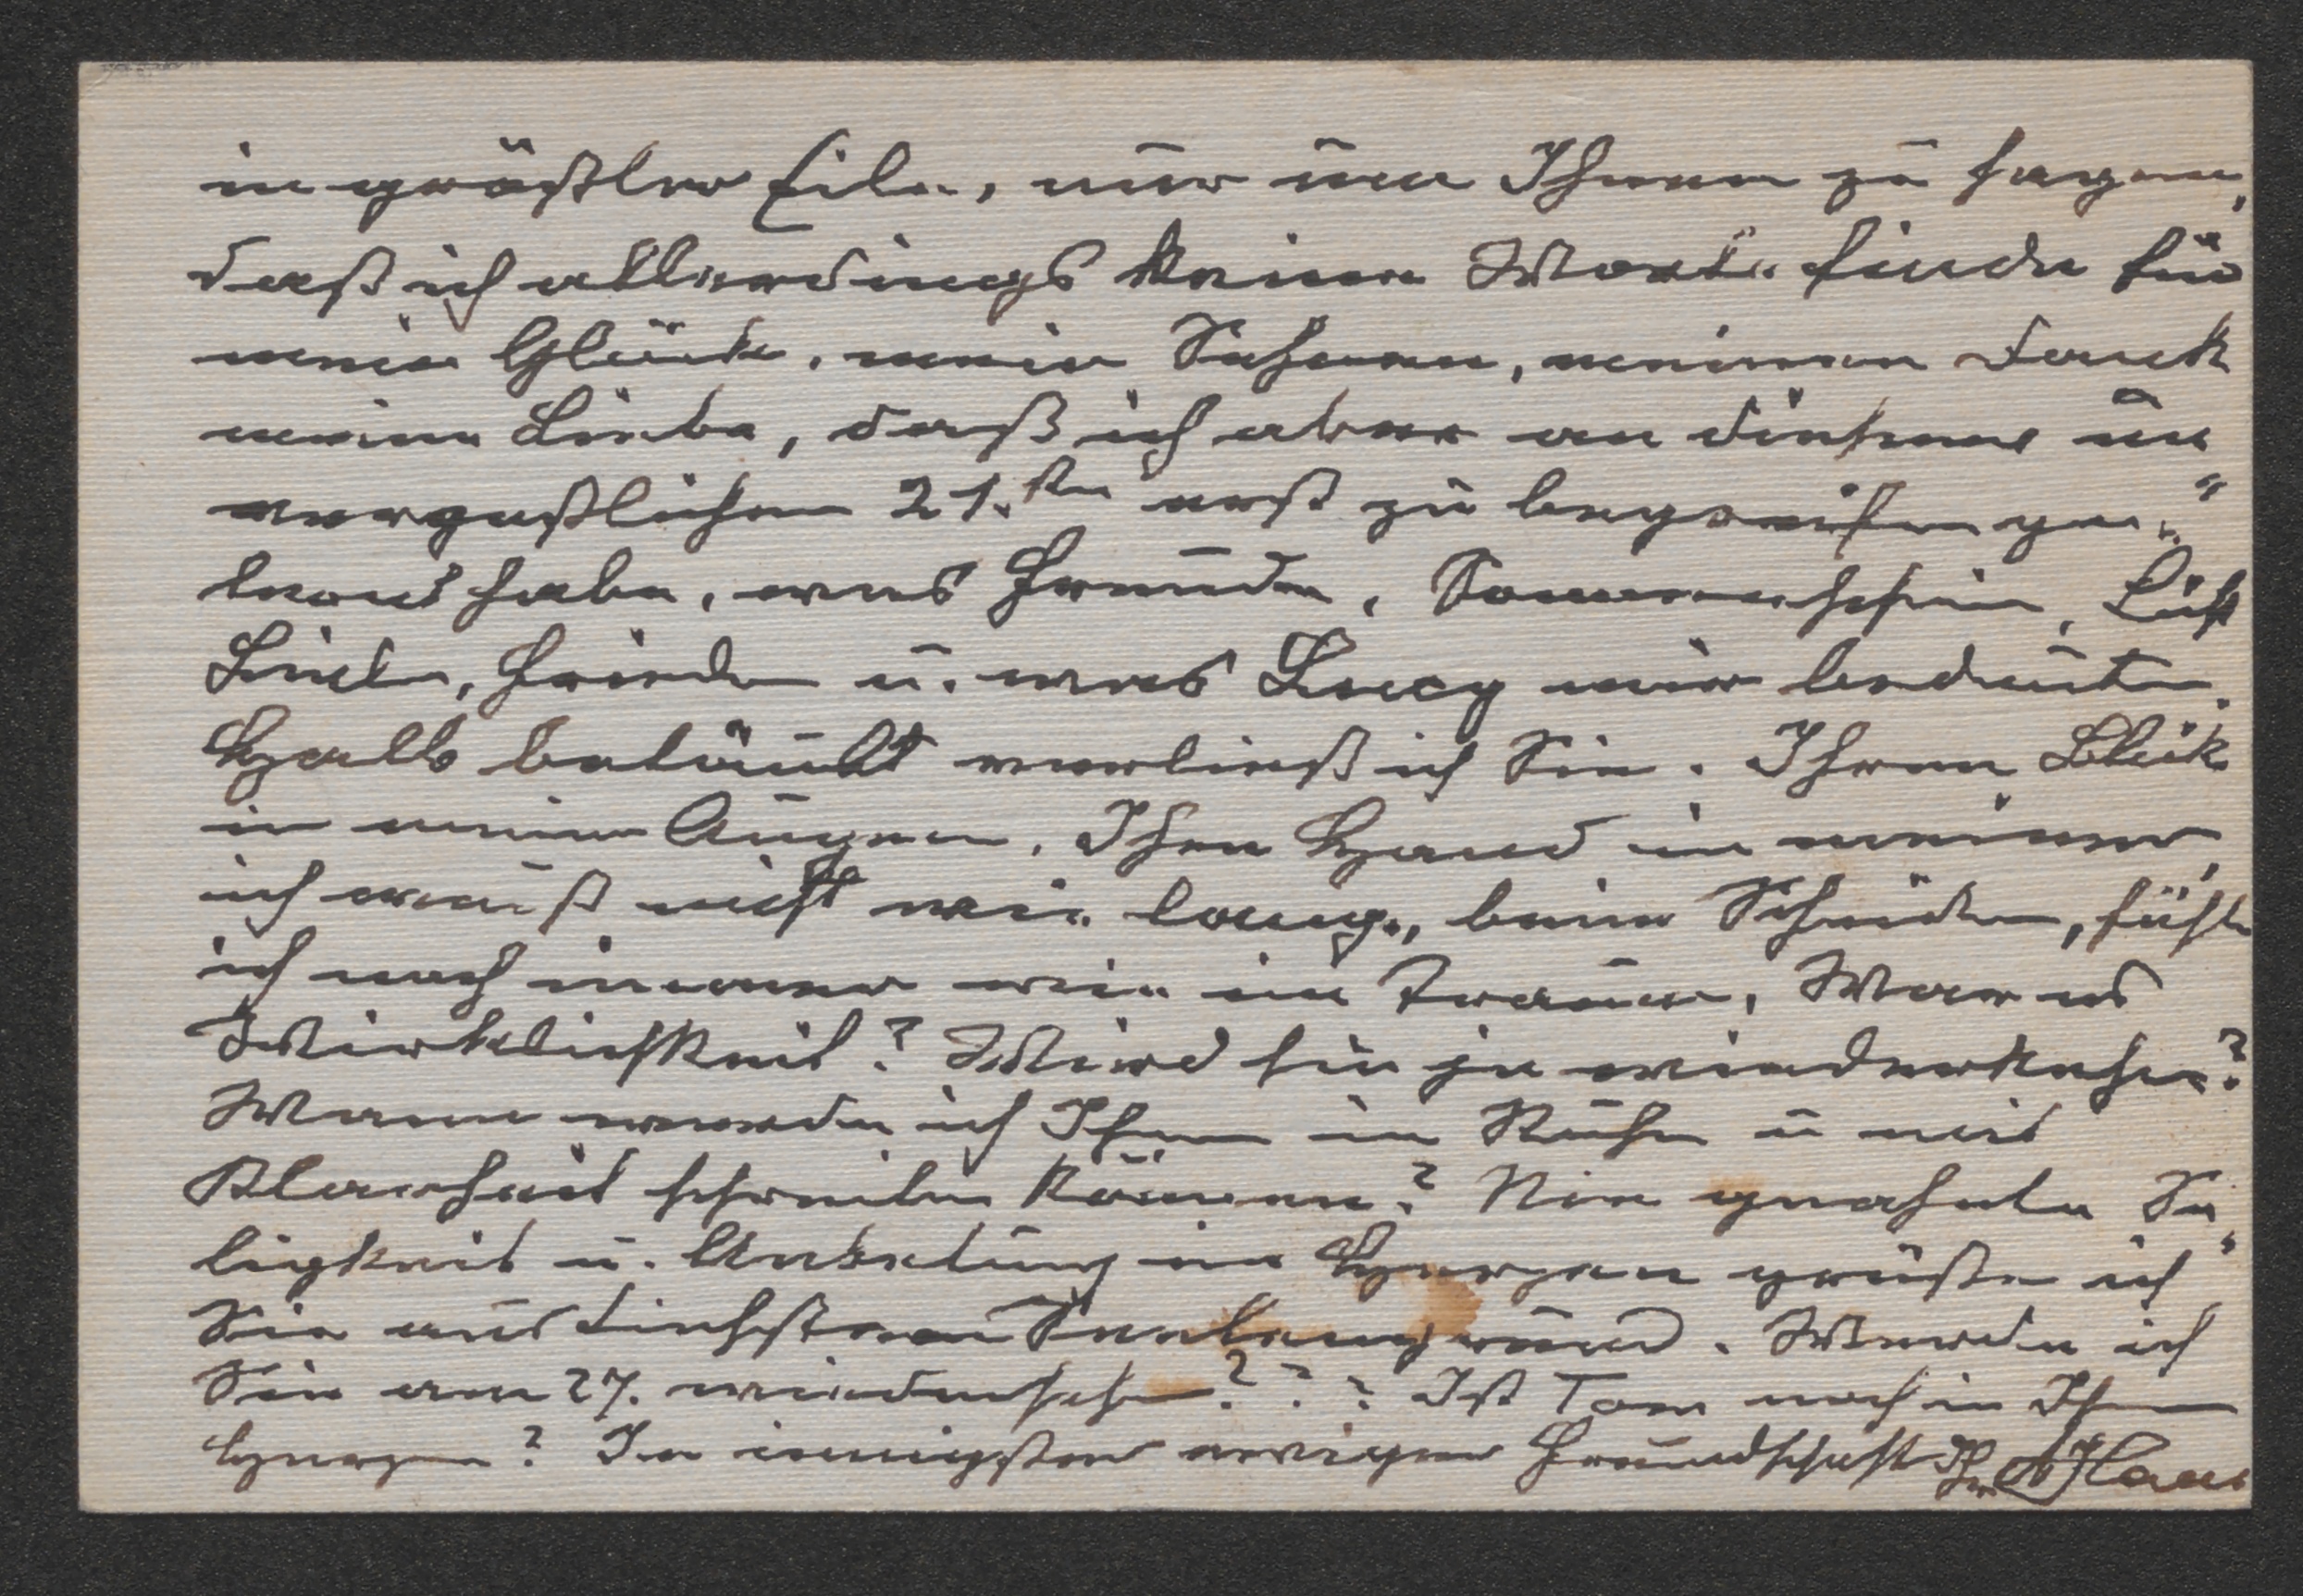 in größter Eile, nur um Ihnen zu sagen,
daß ich allerdings keine Worte finde für
mein Glück, mein Sehnen, meinen Dank
meine Liebe, daß ich aber an diesem un
vergeßlichen 21.ten erst zu begreifen ge„
lernt habe, was Freude, Sonnenschein, Luft
Liebe, Frieden u. was Lucy mir bedeuten.
Halb betäubt verließ ich Sie. Ihren Blick
in meinen Augen, Ihre Hand in meiner,
ich weiß nicht wie lange, beim Scheiden, fühle
ich noch immer wie im Traum. War es
Wirklichkeit? Wird sie je wiederkehren?
Wann werde ich Ihnen in Ruhe u mit
Klarheit schreiben können? Nie geahnte Se„
ligkeit u. Anbetung im Herzen grüße ich
Sie aus tiefstem Seelengrund. Werde ich
Sie am 27. wiedersehen??? Ist Tom noch in Ihrem
Herzen? In innigster ewiger Freundschaft Ihr Hans